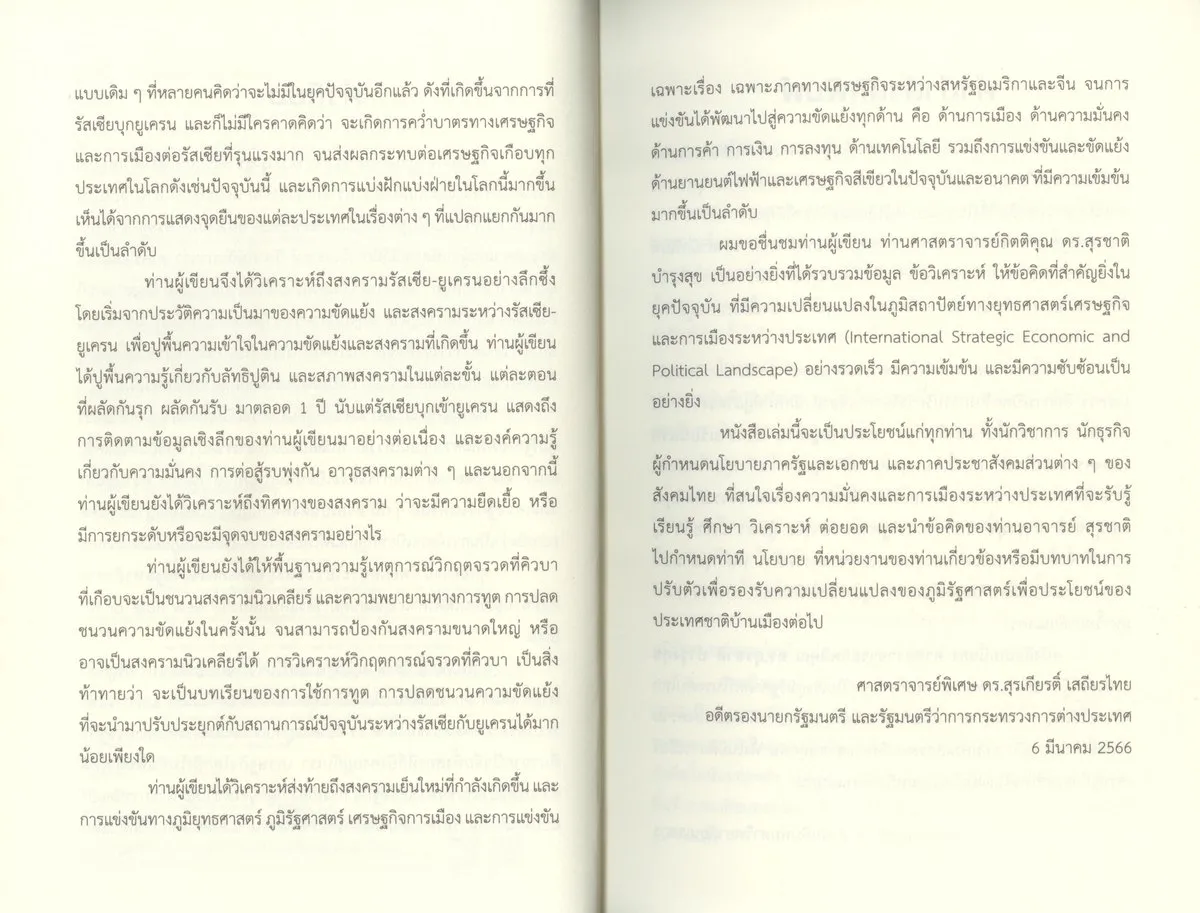 แบบเดิม ๆ ที่หลายคนคิดว่าจะไม่มีในยุคปัจจุบันอีกแล้ว ดังที่เกิดขึ้นจากการที่
รัสเซียบุกยูเครน และก็ไม่มีใครคาดคิดว่า จะเกิดการคว่ำบาตรทางเศรษฐกิจ
และการเมืองต่อรัสเซียที่รุนแรงมาก จนส่งผลกระทบต่อเศรษฐกิจเกือบทุก
ประเทศในโลกดังเช่นปัจจุบันนี้ และเกิดการแบ่งฝักแบ่งฝ่ายในโลกนี้มากขึ้น
เห็นได้จากการแสดงจุดยืนของแต่ละประเทศในเรื่องต่าง ๆ ที่แปลกแยกกันมาก
ขึ้นเป็นลำดับ
ท่านผู้เขียนจึงได้วิเคราะห์ถึงสงครามรัสเซีย-ยูเครนอย่างลึกซึ้ง
โดยเริ่มจากประวัติความเป็นมาของความขัดแย้ง และสงครามระหว่างรัสเซีย-
ยูเครน เพื่อปูพื้นความเข้าใจในความขัดแย้งและสงครามที่เกิดขึ้น ท่านผู้เขียน
ได้ปูพื้นความรู้เกี่ยวกับลัทธิปูติน และสภาพสงครามในแต่ละขั้น แต่ละตอน
ที่ผลัดกันรุก ผลัดกันรับ มาตลอด 1 ปี นับแต่รัสเซียบุกเข้ายูเครน แสดงถึง
การติดตามข้อมูลเชิงลึกของท่านผู้เขียนมาอย่างต่อเนื่อง และองค์ความรู้
เกี่ยวกับความมั่นคง การต่อสู้รบพุ่งกัน อาวุธสงครามต่าง ๆ และนอกจากนี้
ท่านผู้เขียนยังได้วิเคราะห์ถึงทิศทางของสงคราม ว่าจะมีความยืดเยื้อ หรือ
มีการยกระดับหรือจะมีจุดจบของสงครามอย่างไร
ท่านผู้เขียนยังได้ให้พื้นฐานความรู้เหตุการณ์วิกฤตจรวดที่คิวบา
ที่เกือบจะเป็นชนวนสงครามนิวเคลียร์ และความพยายามทางการทูต การปลด
ชนวนความขัดแย้งในครั้งนั้น จนสามารถป้องกันสงครามขนาดใหญ่ หรือ
อาจเป็นสงครามนิวเคลียร์ได้ การวิเคราะห์วิกฤตการณ์จรวดที่คิวบา เป็นสิ่ง
ท้าทายว่า จะเป็นบทเรียนของการใช้การทูต การปลดชนวนความขัดแย้ง
ที่จะนำมาปรับประยุกต์กับสถานการณ์ปัจจุบันระหว่างรัสเซียกับยูเครนได้มาก
น้อยเพียงใด
ท่านผู้เขียนได้วิเคราะห์ส่งท้ายถึงสงครามเย็นใหม่ที่กำลังเกิดขึ้น และ
การแข่งขันทางภูมิยุทธศาสตร์ ภูมิรัฐศาสตร์ เศรษฐกิจการเมือง และการแข่งขัน
เฉพาะเรื่อง เฉพาะภาคทางเศรษฐกิจระหว่างสหรัฐอเมริกาและจีน จนการ
แข่งขันได้พัฒนาไปสู่ความขัดแย้งทุกด้าน คือ ด้านการเมือง ด้านความมั่นคง
ด้านการค้า การเงิน การลงทุน ด้านเทคโนโลยี รวมถึงการแข่งขันและขัดแย้ง
ด้านยานยนต์ไฟฟ้าและเศรษฐกิจสีเขียวในปัจจุบันและอนาคต ที่มีความเข้มข้น
มากขึ้นเป็นลำดับ
ผมขอชื่นชมท่านผู้เขียน ท่านศาสตราจารย์กิตติคุณ ดร.สุรชาติ
บำรุงสุข เป็นอย่างยิ่งที่ได้รวบรวมข้อมูล ข้อวิเคราะห์ ให้ข้อคิดที่สำคัญยิ่งใน
ยุคปัจจุบัน ที่มีความเปลี่ยนแปลงในภูมิสถาปัตย์ทางยุทธศาสตร์เศรษฐกิจ
และการเมืองระหว่างประเทศ (International Strategic Economic and
Political Landscape) อย่างรวดเร็ว มีความเข้มข้น และมีความซับซ้อนเป็น
อย่างยิ่ง
หนังสือเล่มนี้จะเป็นประโยชน์แก่ทุกท่าน ทั้งนักวิชาการ นักธุรกิจ
ผู้กำหนดนโยบายภาครัฐและเอกชน และภาคประชาสังคมส่วนต่าง ๆ ของ
สังคมไทย ที่สนใจเรื่องความมั่นคงและการเมืองระหว่างประเทศที่จะรับรู้
เรียนรู้ ศึกษา วิเคราะห์ ต่อยอด และนำข้อคิดของท่านอาจารย์ สุรชาติ
ไปกำหนดท่าที นโยบาย ที่หน่วยงานของท่านเกี่ยวข้องหรือมีบทบาทในการ
ปรับตัวเพื่อรองรับความเปลี่ยนแปลงของภูมิรัฐศาสตร์เพื่อประโยชน์ของ
ประเทศชาติบ้านเมืองต่อไป
ศาสตราจารย์พิเศษ ดร.สุรเกียรติ์ เสถียรไทย
อดีตรองนายกรัฐมนตรี และรัฐมนตรีว่าการกระทรวงการต่างประเทศ
6 มีนาคม 2566